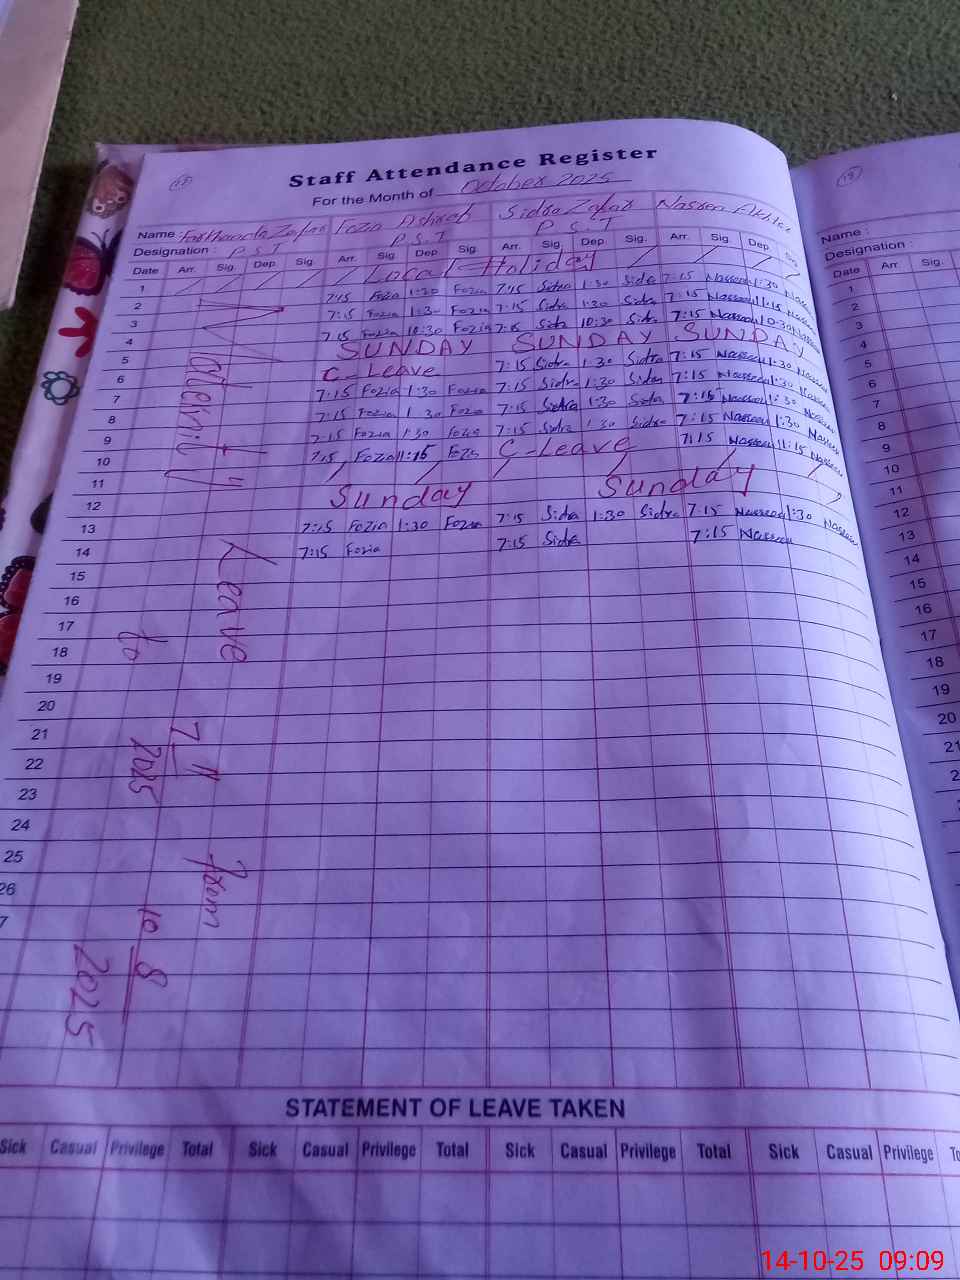 Staff Attendance Register
For the Month of October 2025
Name : Farkhanda Zafar Fozia Ashraf Sidra Zafar Nasreen Akhter
Designation : P.S.T P.S.T P.S.T
Date Arr. Sig. Dep. Sig. Arr. Sig. Dep. Sig. Arr. Sig. Dep. Sig. Arr. Sig. Dep. Sig.
1 Local Holiday
2 7:15 Fozia 1:30 Fozia 7:15 Sidra 1:30 Sidra 7:15 Nasreen 1:30
3 7:15 Fozia 1:30 Fozia 7:15 Sidra 1:30 Sidra 7:15 Nasreen 1:15 Nasreen
4 7:15 Fozia 10:30 Fozia 7:15 Sidra 10:30 Sidra 7:15 Nasreen 10:30 Nasreen
5 SUNDAY SUNDAY SUNDAY
6 C-Leave 7:15 Sidra 1:30 Sidra 7:15 Nasreen 1:30 Nasreen
7 7:15 Fozia 1:30 Fozia 7:15 Sidra 1:30 Sidra 7:15 Nasreen 1:30 Nasreen
8 7:15 Fozia 1:30 Fozia 7:15 Sidra 1:30 Sidra 7:15 Nasreen 1:30 Nasreen
9 7:15 Fozia 1:30 Fozia 7:15 Sidra 1:30 Sidra 7:15 Nasreen 1:30 Nasreen
10 7:15 Fozia 11:15 Fozia C-Leave 7:15 Nasreen 11:15 Nasreen
11
12 Sunday Sunday
13 7:15 Fozia 1:30 Fozia 7:15 Sidra 1:30 Sidra 7:15 Nasreen 1:30 Nasreen
14 7:15 Fozia 7:15 Sidra 7:15 Nasreen
15
16
17
18
19
20
21
22
23
24
25
26
7
Maternity Leave from
10 8 2025
to 7 11 2025
STATEMENT OF LEAVE TAKEN
Sick Casual Privilege Total Sick Casual Privilege Total Sick Casual Privilege Total Sick Casual Privilege To
Name :
Designation :
Date Arr. Sig.
1
2
3
4
5
6
7
8
9
10
11
12
13
14
15
16
17
18
19
20
21
2
14-10-25 09:09